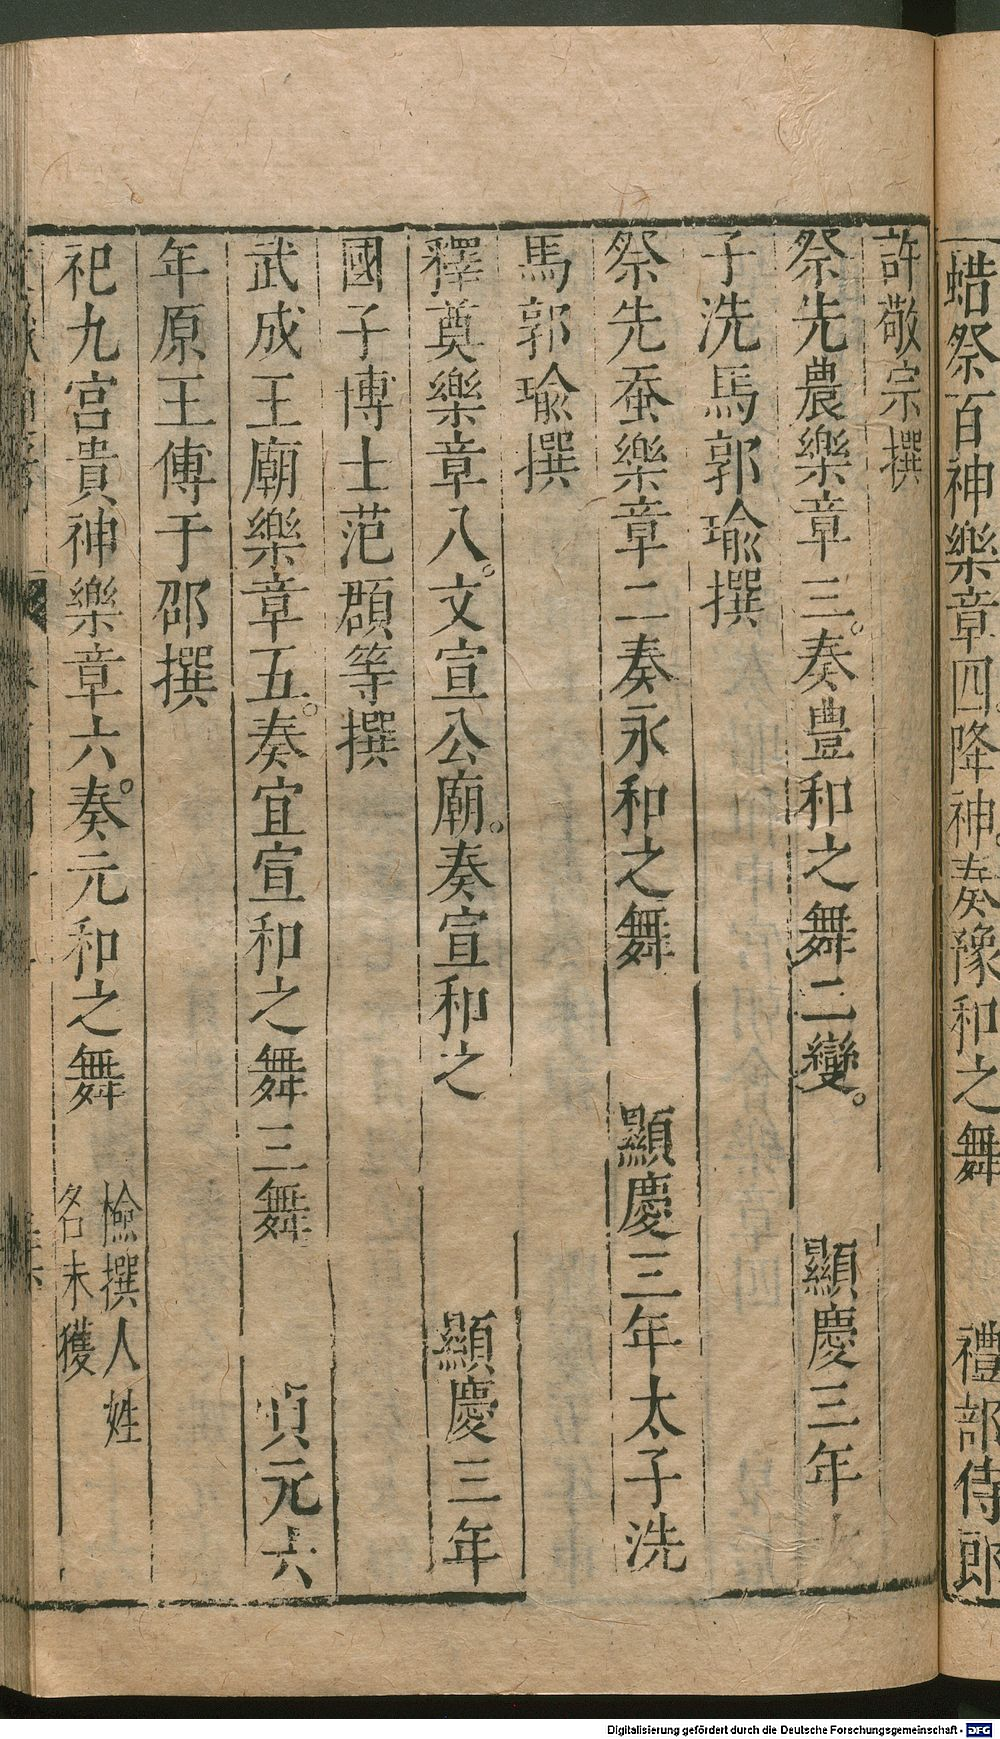 蜡祭百神樂章四降神奏豫和之舞　禮部侍郎
許敬宗撰
祭先農樂章三。奏豊和之舞二變。　顯慶三年
子洗馬郭瑜撰
祭先蚕樂章二奏永和之舞　顯慶三年太子洗
馬郭瑜撰
釋奠樂章八。文宣公廟。奏宣和之　顯慶三年
國子博士范頵等撰
武成王廟樂章五。奏宜宣和之舞三舞　貞元六
年原王傅于邵撰
祀九宮貴神樂章六。奏元和之舞　檢撰人姓
名未獲
Digitalisierung gefördert durch die Deutsche Forschungsgemeinschaft - DFG